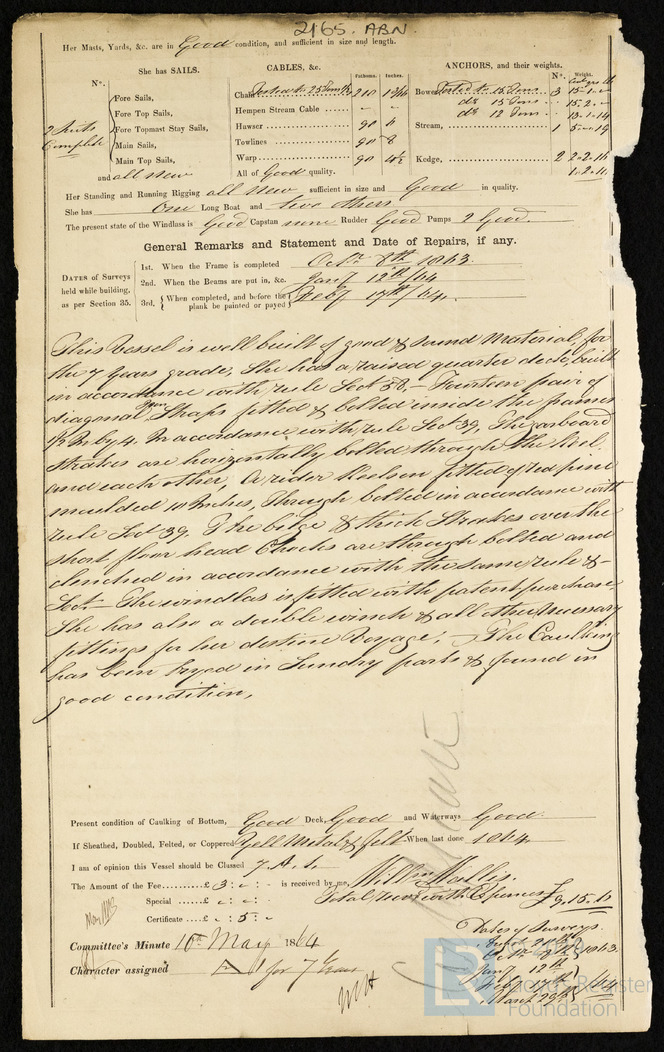 2165. ABN
Her Masts, Yards, &c. are in Good condition, and sufficient in size and length.
She has SAILS. CABLES, &c. Fathoms. Inches. ANCHORS, and their weights. No. Weight.
No.
Fore Sails, Chain Tested to 25 Tons 210 1 3/16 Bower Tested to 15 Tons 3 15-1-"
Fore Top Sails, Hempen Stream Cable - - do 15 Tons 15-2-"
2 Suits Complete Fore Topmast Stay Sails, Hawser 90 6 do 12 Tons 13-1-14
Main Sails, Towlines 90 8 Stream, 1 5-"-19
Main Top Sails, Warp 90 4½ Kedge, 2 2-2-16
and all new All of Good quality. 1-2-11
Her Standing and Running Rigging all new sufficient in size and Good in quality.
She has One Long Boat and two others
The present state of the Windlass is Good Capstan none Rudder Good Pumps 2 Good.
General Remarks and Statement and Date of Repairs, if any.
DATES of Surveys held while building, as per Section 35.
1st. When the Frame is completed Octr 8th 1863.
2nd. When the Beams are put in, &c. Jany 12th/64
3rd. When completed, and before the plank be painted or payed Feby 17th/64.
This Vessel is well built of good & sound Material, for
the 7 Years grade, She has a raised quarter deck, built
in accordance with rule Sect 58,- Fourteen pair of
diagonal Iron Straps fitted & bolted inside the frames
in accordance with rule Sect 39, The garboard
Strakes are horizontally bolted through the Keel
and each other, A rider Keelson fitted of red pine
moulded 10 Inches, Through bolted in accordance with
rule Sect 39. The bilge & thick Strakes over the
short floor head Chocks are through bolted and
clenched in accordance with the same rule &
Sect- The windlas is fitted with patent purchase
She has also a double winch & all other necessary
fittings for her destine Voyage, - The Caulking
has been tryed in Sundry parts & found in
good condition,
Present condition of Caulking of Bottom, Good Deck, Good and Waterways Good.
If Sheathed, Doubled, Felted, or Coppered Yell Metal & felt When last done 1864
I am of opinion this Vessel should be Classed 7 A. 1.
The Amount of the Fee......£ 3:":- is received by me,
Special ...£ ":":-
Certificate ...£ ": 5:-
Total with Expenses £9.15.6
Dates of Surveys.
Octr 8th 1863.
Jany 12th
Feby 17th /64
March 29th
Committee's Minute 10th May 1864
Character assigned A 1 for 7 Years
Lloyd's Register
Foundation